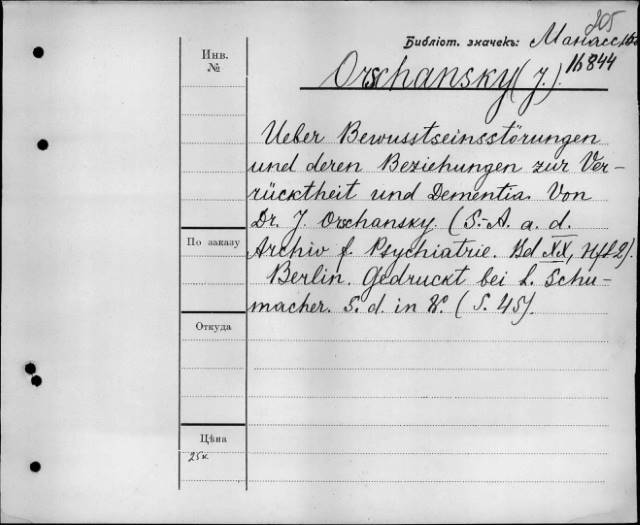 205
Библіот. значекъ: Манассе 1б
Инв.
№
16844
Orschansky (J.)
Ueber Bewusstseinsstörungen
und deren Beziehungen zur Ver-
rücktheit und Dementia. Von
Dr. J. Orschansky. (S.-A. a. d.
По заказу
Archiv f. Psychiatrie. Bd XX, Hft 2).
Berlin. Gedruckt bei L. Schu-
macher. S. d. in 8º. (S. 45).
Откуда
Цѣна
25к.